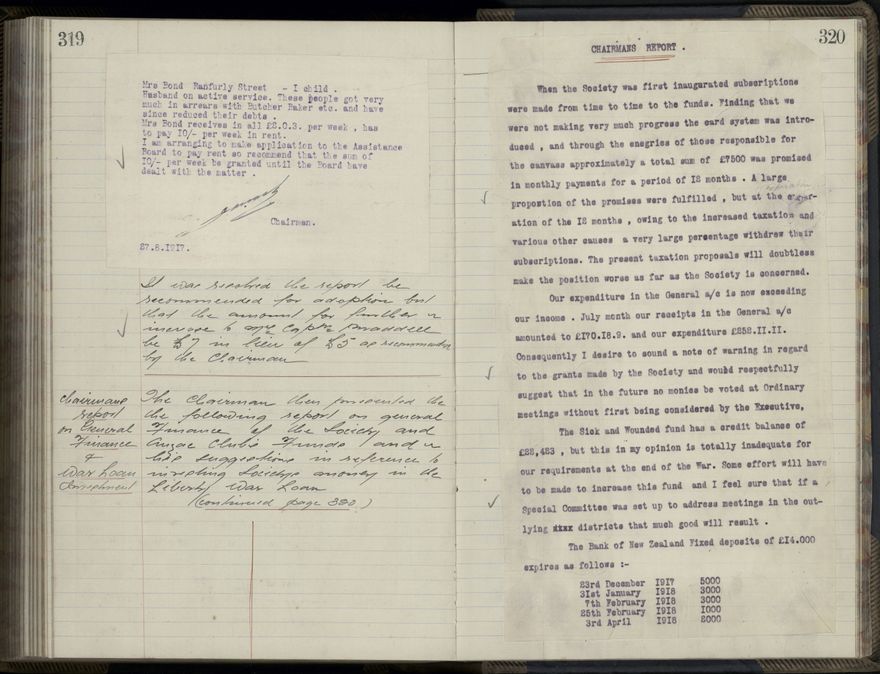 319
Mrs Bond Ranfurly Street - I child .
Husband on active service. These people got very
much in arrears with Butcher Baker etc. and have
since reduced their debts .
Mrs Bond receives in all £2.0.3. per week , has
to pay IO/- per week in rent.
I am arranging to make application to the Assistance
Board to pay rent so recommend that the sum of
IO/- per week be granted until the Board have
dealt with the matter .
Chairman.
27.8.1917.
It was resolved the report be
recommended for adoption but
that the amount for further
increase to Mrs Capt Braddell
be £7 in lieu of £5 as recommended
by the Chairman
Chairmans report on General Finance & War Loan Investment
The Chairman then presented the
the following report on general
Finance of the Society and
Anzac Clubs Funds / and
his suggestions in reference to
investing Societys money in the
Liberty War Loan
(continued page 320)
320
CHAIRMANS REPORT .
When the Society was first inaugurated subscriptions
were made from time to time to the funds. Finding that we
were not making very much progress the card system was intro-
duced , and through the enegries of those responsible for
the canvass approximately a total sum of £7500 was promised
in monthly payments for a period of I2 months . A large
expiration
propostion of the promises were fulfilled , but at the expar-
ation of the I2 months , owing to the increased taxation and
various other causes a very large percentage withdrew their
subscriptions. The present taxation proposals will doubtless
make the position worse as far as the Society is concerned.
Our expenditure in the General a/c is now exceeding
our income . July month our receipts in the General a/c
amounted to £I70.I8.9. and our expenditure £252.II.II.
Consequently I desire to sound a note of warning in regard
to the grants made by the Society and would respectfully
suggest that in the future no monies be voted at Ordinary
meetings without first being considered by the Executive,
The Sick and Wounded fund has a credit balance of
£22,423 , but this in my opinion is totally inadequate for
our requirements at the end of the War. Some effort will have
to be made to increase this fund and I feel sure that if a
Special Committee was set up to address meetings in the out-
lying districts that much good will result .
The Bank of New Zealand Fixed deposits of £I4.000
expires as follows :-
23rd December I9I7 5000
3Ist January I9I8 3000
7th February I9I8 3000
25th February I9I8 I000
3rd April I9I8 2000